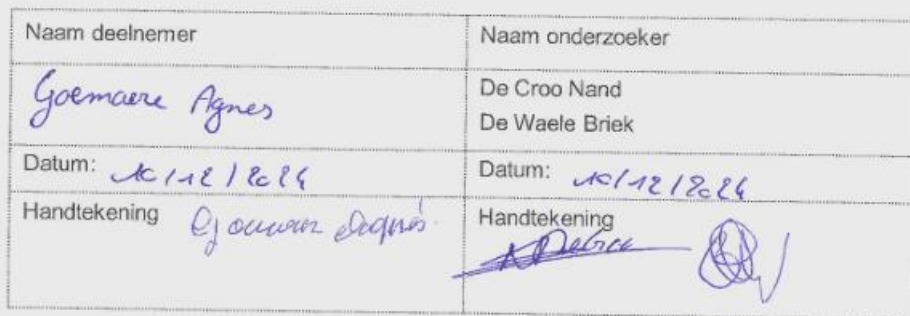 Naam deelnemer
Naam onderzoeker
Goemaere Agnes
De Croo Nand
De Waele Briek
Datum: 10/12/2024
Datum: 10/12/2024
Handtekening Goemaere Agnes
Handtekening